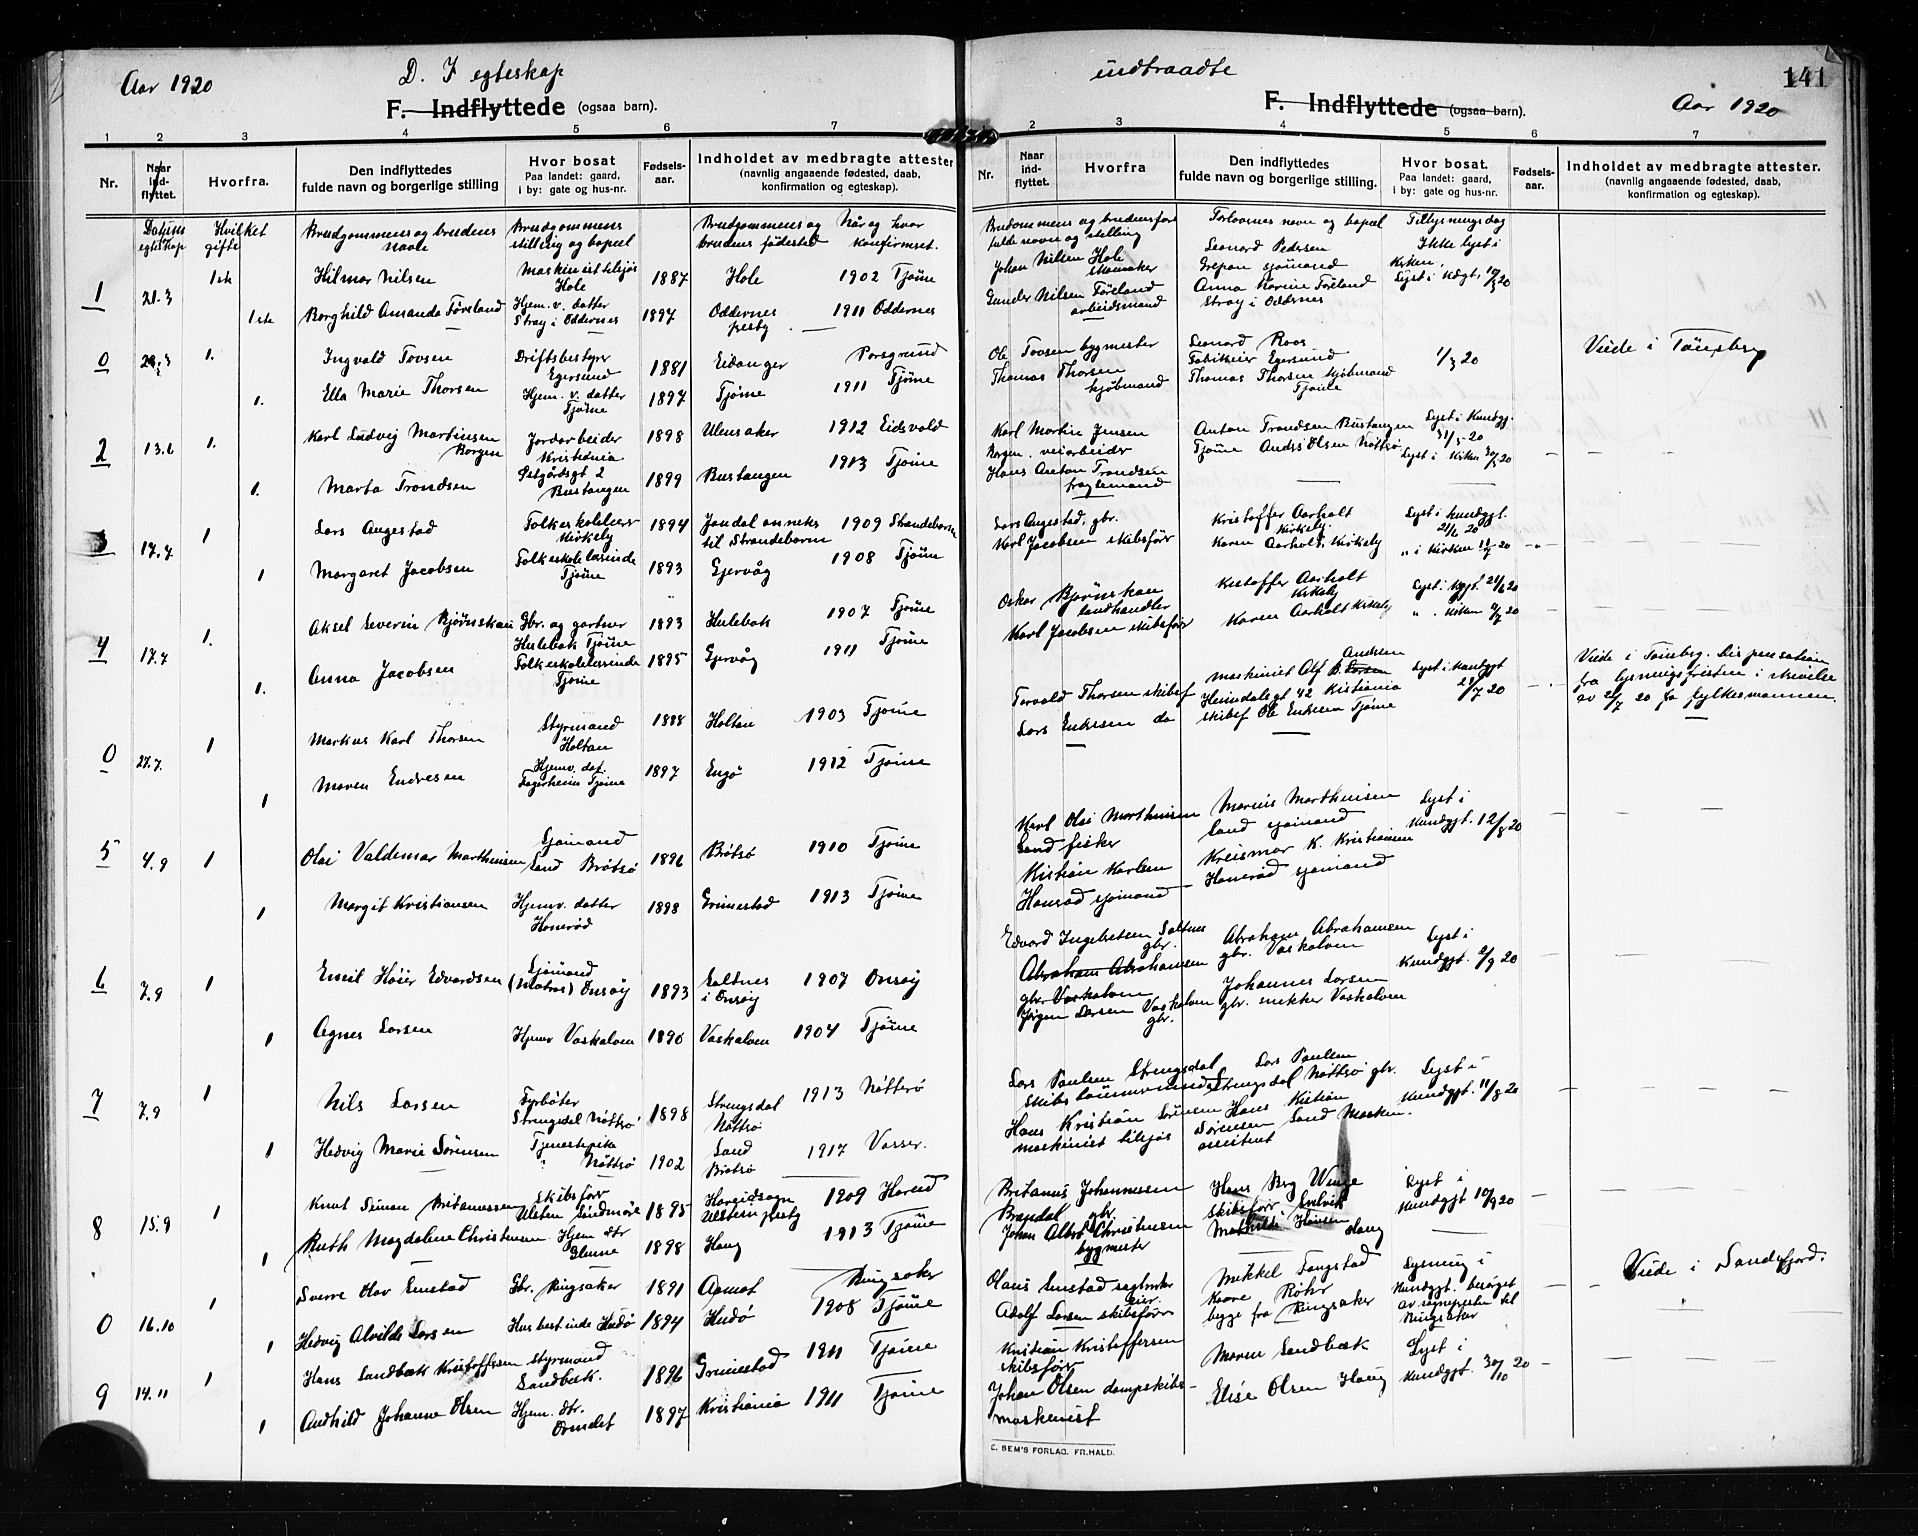 Aar 1920
D. I egteskap
F. Indflyttede (ogsaa barn).
1 2 3 4 5 6 7
Nr.
Naar ind-flyttet.
Hvorfra.
Den indflyttedes fulde navn og borgerlige stilling
Hvor bosat
Paa landet: gaard, i by: gate og hus-nr.
Fødsels-aar.
Indholdet av medbragte attester
(navnlig angaaende fødested, daab, konfirmation og egteskap).
Datum egteskap
Hvilket gifte
Brudgommens og brudens navn
Brudgommens stilling og bopæl
Brudgommens og brudens fødested
Når og hvor konfirmert.
1 21.3 1ste Hilmar Nilsen Maskinist tilsjøs Hole 1887 Hole 1902 Tjøme
1ste Borghild Amanda Føreland Hjem. v. datter Stray i Oddernes 1897 Oddernes pestg. 1911 Oddernes
0 28.3 1. Ingvald Tovsen Driftsbestyrer Egersund 1881 Eidanger Porsgrund
1. Ella Marie Thorsen Hjem. v. datter Tjøme 1897 Tjøme 1911 Tjøme
2 13.6 1. Karl Ludvig Martinsen Borgen Jordarbeider Kristiania Østgårdsgt 2 1898 Ulensaker 1912 Eidsvold
1. Marta Trondsen Bustangen 1899 Bustangen 1913 Tjøme
3 17.7 1 Lars Augestad Folkeskolelærer Kirkely 1894 Jondal anneks til Strandebarm 1909 Strandebarm
1 Margaret Jacobsen Folkeskolelærerinde Tjøme 1893 Gjervåg 1908 Tjøme
4 17.7 1. Aksel Severin Bjørnskau Gbr. og gartner Hulebak Tjøme 1893 Hulebak 1907 Tjøme
1. Anna Jacobsen Folkeskolelærerinde Tjøme 1895 Gjervåg 1911 Tjøme
0 27.7. 1 Markus Karl Thorsen Styrmand Holtan 1888 Holtan 1903 Tjøme
1 Maren Endresen Hjemv. dat. Fagerheim Tjøme 1897 Engø 1912 Tjøme
5 4.9 1 Olai Valdemar Marthinsen Sjømand Sand Brøtsø 1896 Brøtsø 1910 Tjøme
1 Margit Kristiansen Hjemv. datter Honerød 1898 Grimestad 1913 Tjøme
6 7.9 1 Emil Høier Edvardsen Sjømand (Matros) Onsøy 1893 Saltnes i Onsøy 1907 Onsøy
1 Agnes Larsen Hjemv Vaskalven 1890 Vaskalven 1904 Tjøme
7 7.9 1 Nils Larsen Fyrbøter Strengsdal Nøttrø 1898 Strengsdal Nøttrø 1913 Nøtterø
1 Hedvig Marie Sørensen Tjenestepike " Nøttrø 1902 Sand Brøtsø 1917 Vasser.
8 15.9 1 Knut Britanussen Skibsfører Ulsten Søndmøre 1895 Hareidsogn Ulstein pestg 1909 Hareid
1 Ruth Magdalene Christensen Hjem dtr Glenne 1898 Haug 1913 Tjøme
0 16.10 1 Sverre Olav Smestad Gbr. Ringsaker 1891 Aamot Ringsaker
1 Hedvig Alvilde Larsen Husbestinde Hudø 1894 Hudø 1908 Tjøme
9 14.11 1 Hans Sandbæk Kristoffersen Styrmand Sandbæk. 1896 Grimestad 1911 Tjøme
1 Audhild Johanne Olsen Hjem. dtr. Ormelet 1897 Kristiania 1911 Tjøme
indtraadte
141
F. Indflyttede (ogsaa barn).
Aar 1920
2 3 4 5 6 7
Nr.
Naar ind-flyttet.
Hvorfra
Den indflyttedes fulde navn og borgerlige stilling.
Hvor bosat.
Paa landet: gaard, i by: gate og hus-nr.
Fødsels-aar.
Indholdet av medbragte attester.
(navnlig angaaende fødested, daab, konfirmation og egteskap).
Brudommens og brudens fars fulde navn og stilling
Forlovernes navn og bopæl
Tillysningsdag
Johan Nilsen Hole skomaker Leonard Pedersen Grepan sjømand Ikke lyst i Kirken.
Gunder Nilsen Føreland arbeidsmand Anna Karine Føreland Stray i Oddernes Lyst i Kdgt. 10/3 20
Ole Tovsen bygmester Leonard Roos Fabrikeier Egersund 1/3 20 Viede i Tønsberg
Thomas Thorsen kjøbmand Thomas Thorsen kjøbmand Tjøme
Karl Martin Jensen Borgen. veiarbeider Anton Trondsen Bustangen Lyst i Kundgj. 31/5-20
Hans Anton Trondsen fragtemand Tjøme Andrs Olsen Nøttrø Lyst i Kirken 30/5 20
Lars Augestad, gbr. Kristoffer Aarholt Kirkely Lyst i kundgjt. 21/6 20
Karl Jacobsen skibsfører Karen Aarholt, Kirkely " i Kirken 11/7-20
Oskar Bjørnskau landhandler Kristoffer Aarholt Kirkely Lyst i Kgjt. 21/6 20
Karl Jacobsen skibsfører Karen Aarholt Kirkely " . Kirken 4/7 20
Torvald Thorsen skibsf Maskinist Alf B. Larsen Andersen Heimdalsgt 42 Kristiania Lyst i Kundgjt 23/7 20
Lars Endresen do skibsf Ole Endresen Tjøme
Viede i Tønsbg. Dispensation fra lysningsfristen i skrivelse av 21/7 20 fra fylkesmannen.
Karl Olai Marthinsen Sand fisker Marius Marthinsen Sand sjømand Lyst i Kundgjt. 12/8 20
Kristian Karlsen Honerød sjømand Kreismar K. Kristiansen Honerød sjømand
Edvard Ingebretsen Saltnes gbr. Abraham Abrahamsen gbr. Vaskalven Lyst i Kundgjt. 2/9 20
Abraham Abrahamsen gbr. Vaskalven
Jørgen Larsen Vaskalven gbr. Johannes Larsen gbr. snekker Vaskalven
Lars Paulsen Strengsdal skibstømmermand Lars Paulsen Strengsdal Nøttrø gbr. Lyst i Kundgjt. 11/8 20
Hans Kristian Sørensen maskinist tilsjøs Hans Kristian Sørensen Sand Maskin. assistent
Britanus Johannesen Brandal gbr. Hans Berg Winge skibsfører Solvik Lyst i Kundgjt 10/9 20
Johan Albert Christensen bygmester Mathilde Hansen Haug
Olaus Smestad sagbruks eier. Mikkel Tangstad Kaare Røhr Lysning i Kundgjt. besørget av sognepresten til Ringsaker Viede i Sandefjord.
Adolf Larsen skibsfører begge fra Ringsaker
Kristian Kristoffersen skibsfører Maren Sandbæk Lyst i Kundgjt. 30/10 20
Johan Olsen dampskibsmaskinist Elise Olsen Haug
E. SEM'S FORLAG. FR.HALD.